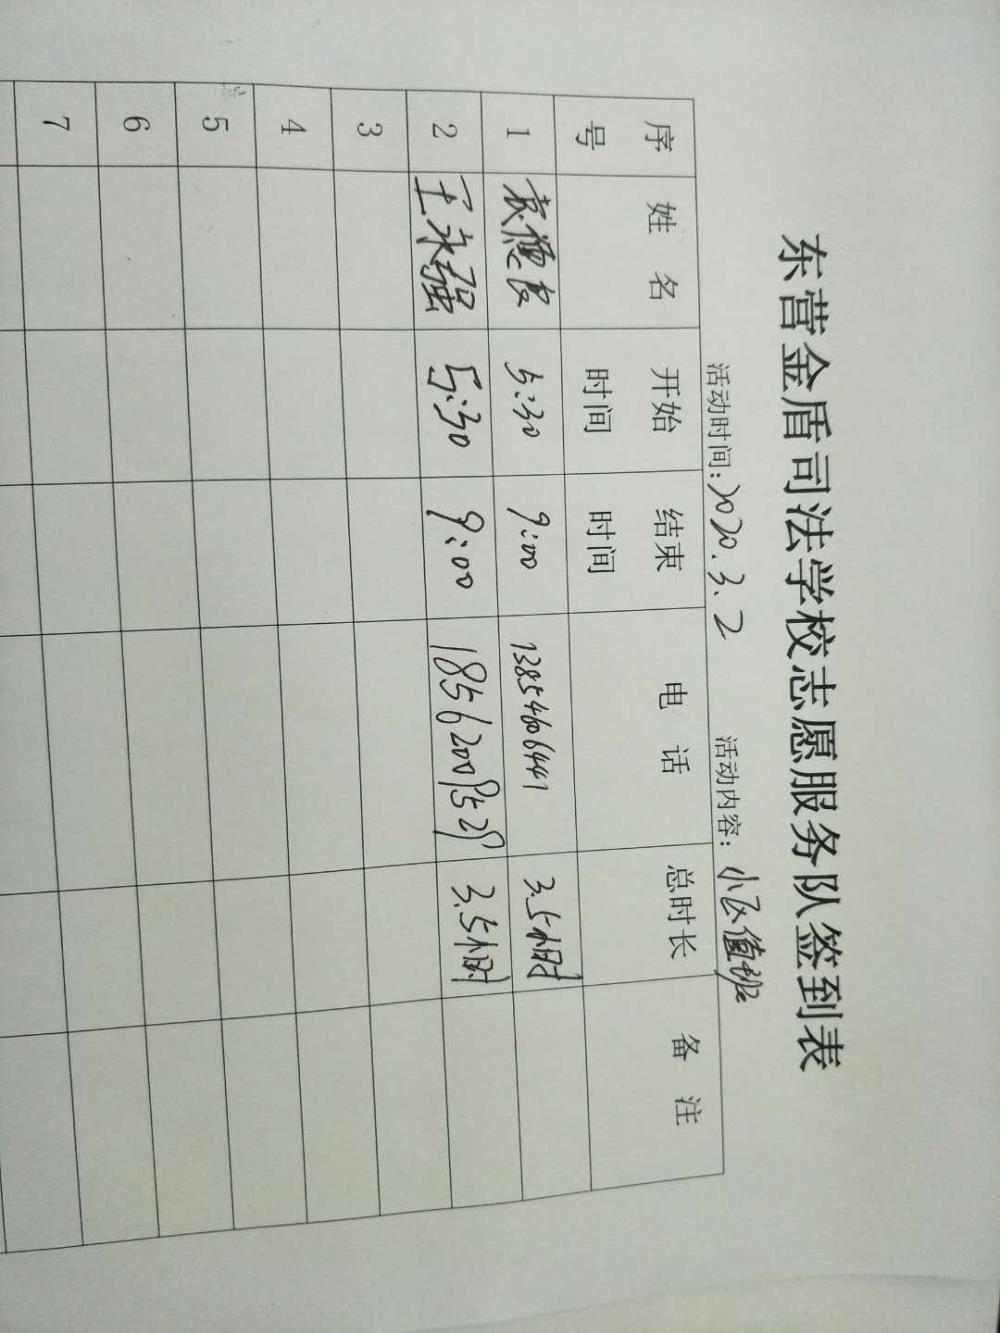 东营金盾司法学校志愿服务队签到表
活动时间：2020.3.2 活动内容：小区值班
序号 姓名 开始时间 结束时间 电话 总时长 备注
1 袁德良 5:30 9:00 13854606441 3.5小时
2 王永强 5:30 9:00 18562009529 3.5小时
3
4
5
6
7